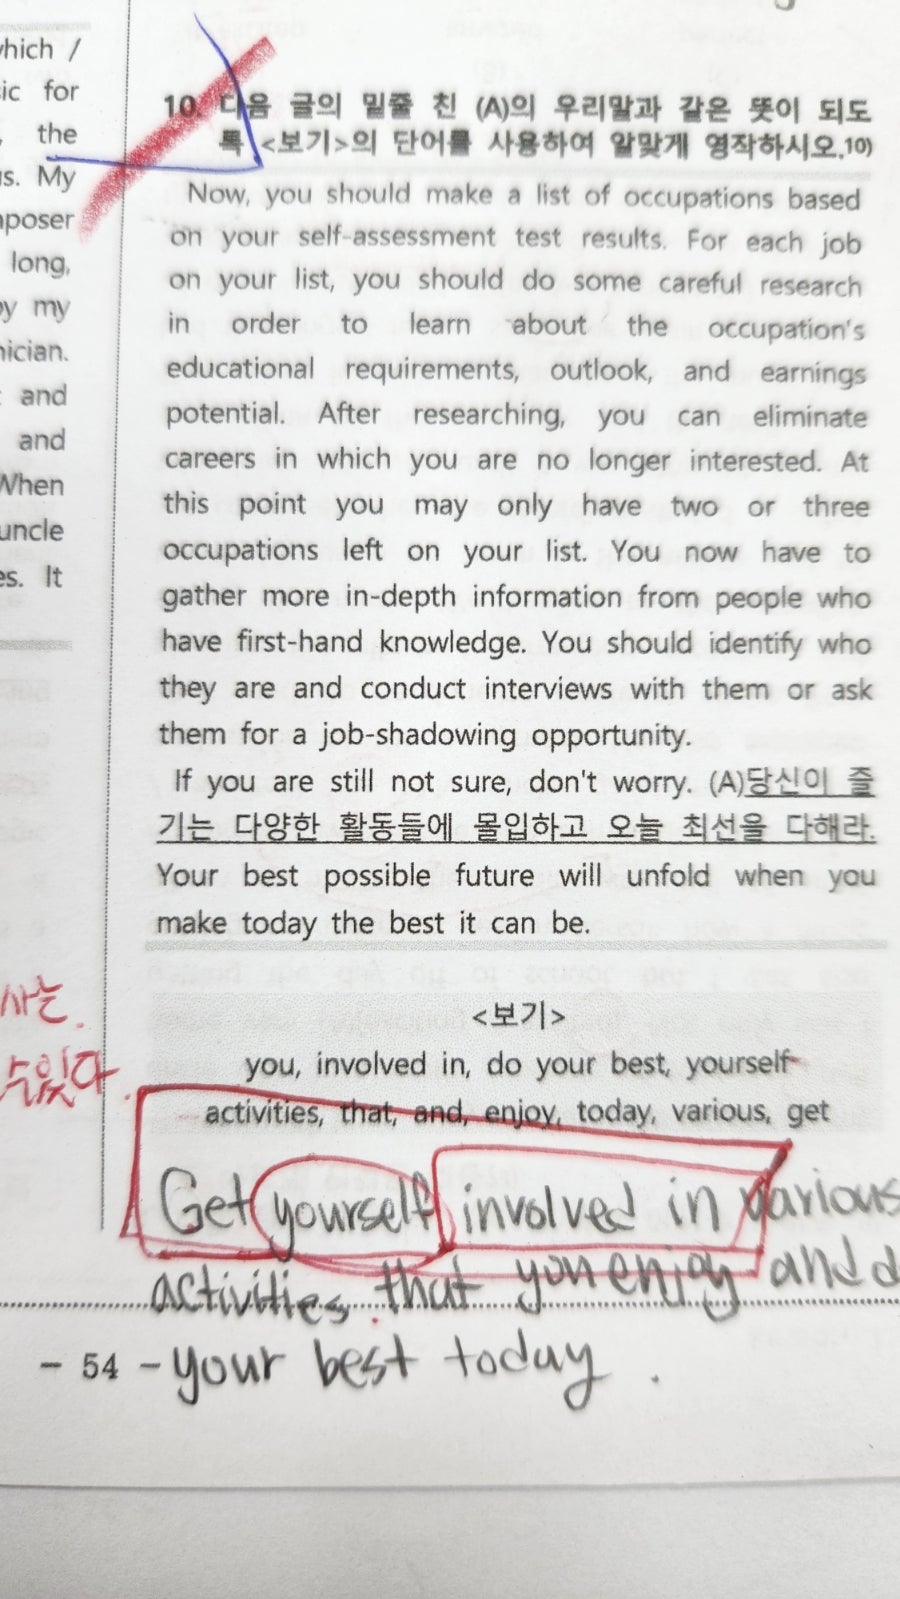 which /
ic for
the
us. My
mposer
long,
by my
and
and
When
uncle
es. It
10. 다음 글의 밑줄 친 (A)의 우리말과 같은 뜻이 되도
록 <보기>의 단어를 사용하여 알맞게 영작하시오.10)
Now, you should make a list of occupations based
on your self-assessment test results. For each job
on your list, you should do some careful research
in order to learn about the occupation's
educational requirements, outlook, and earnings
potential. After researching, you can eliminate
careers in which you are no longer interested. At
this point you may only have two or three
occupations left on your list. You now have to
gather more in-depth information from people who
have first-hand knowledge. You should identify who
they are and conduct interviews with them or ask
them for a job-shadowing opportunity.
If you are still not sure, don't worry. (A)당신이 즐
기는 다양한 활동들에 몰입하고 오늘 최선을 다해라.
Your best possible future will unfold when you
make today the best it can be.
<보기>
you, involved in, do your best, yourself
activities, that, and, enjoy, today, various, get
Get yourself involved in various
activities that you enjoy and d
your best today.
- 54 -